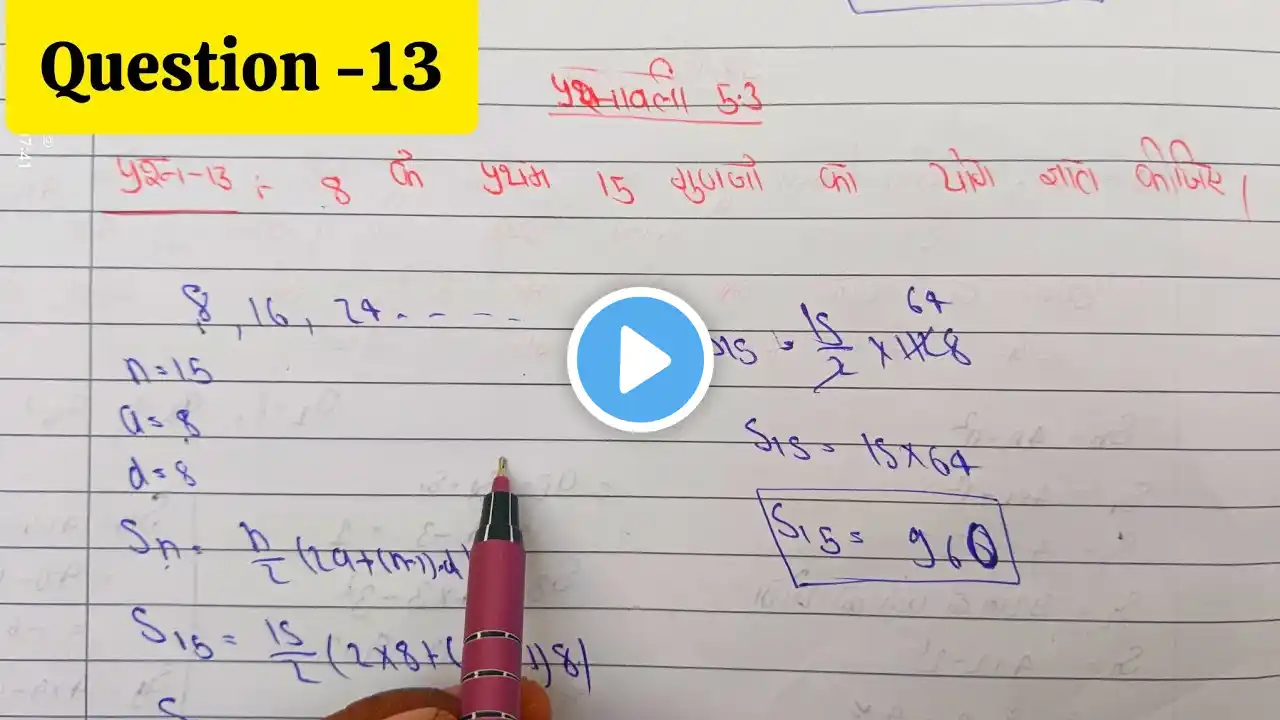 Question -13
प्रश्नावली 5.3
प्रश्न-13 :- 8 के प्रथम 15 गुणजों का योग ज्ञात कीजिए।
8, 16, 24 - - - -
n=15
a=8
d=8
Sn = n/2 (2a+(n-1)d
S15 = 15/2 (2×8+( 1)8)
S
15 = 15/2 × 128
64
S15 = 15×64
S15 = 960